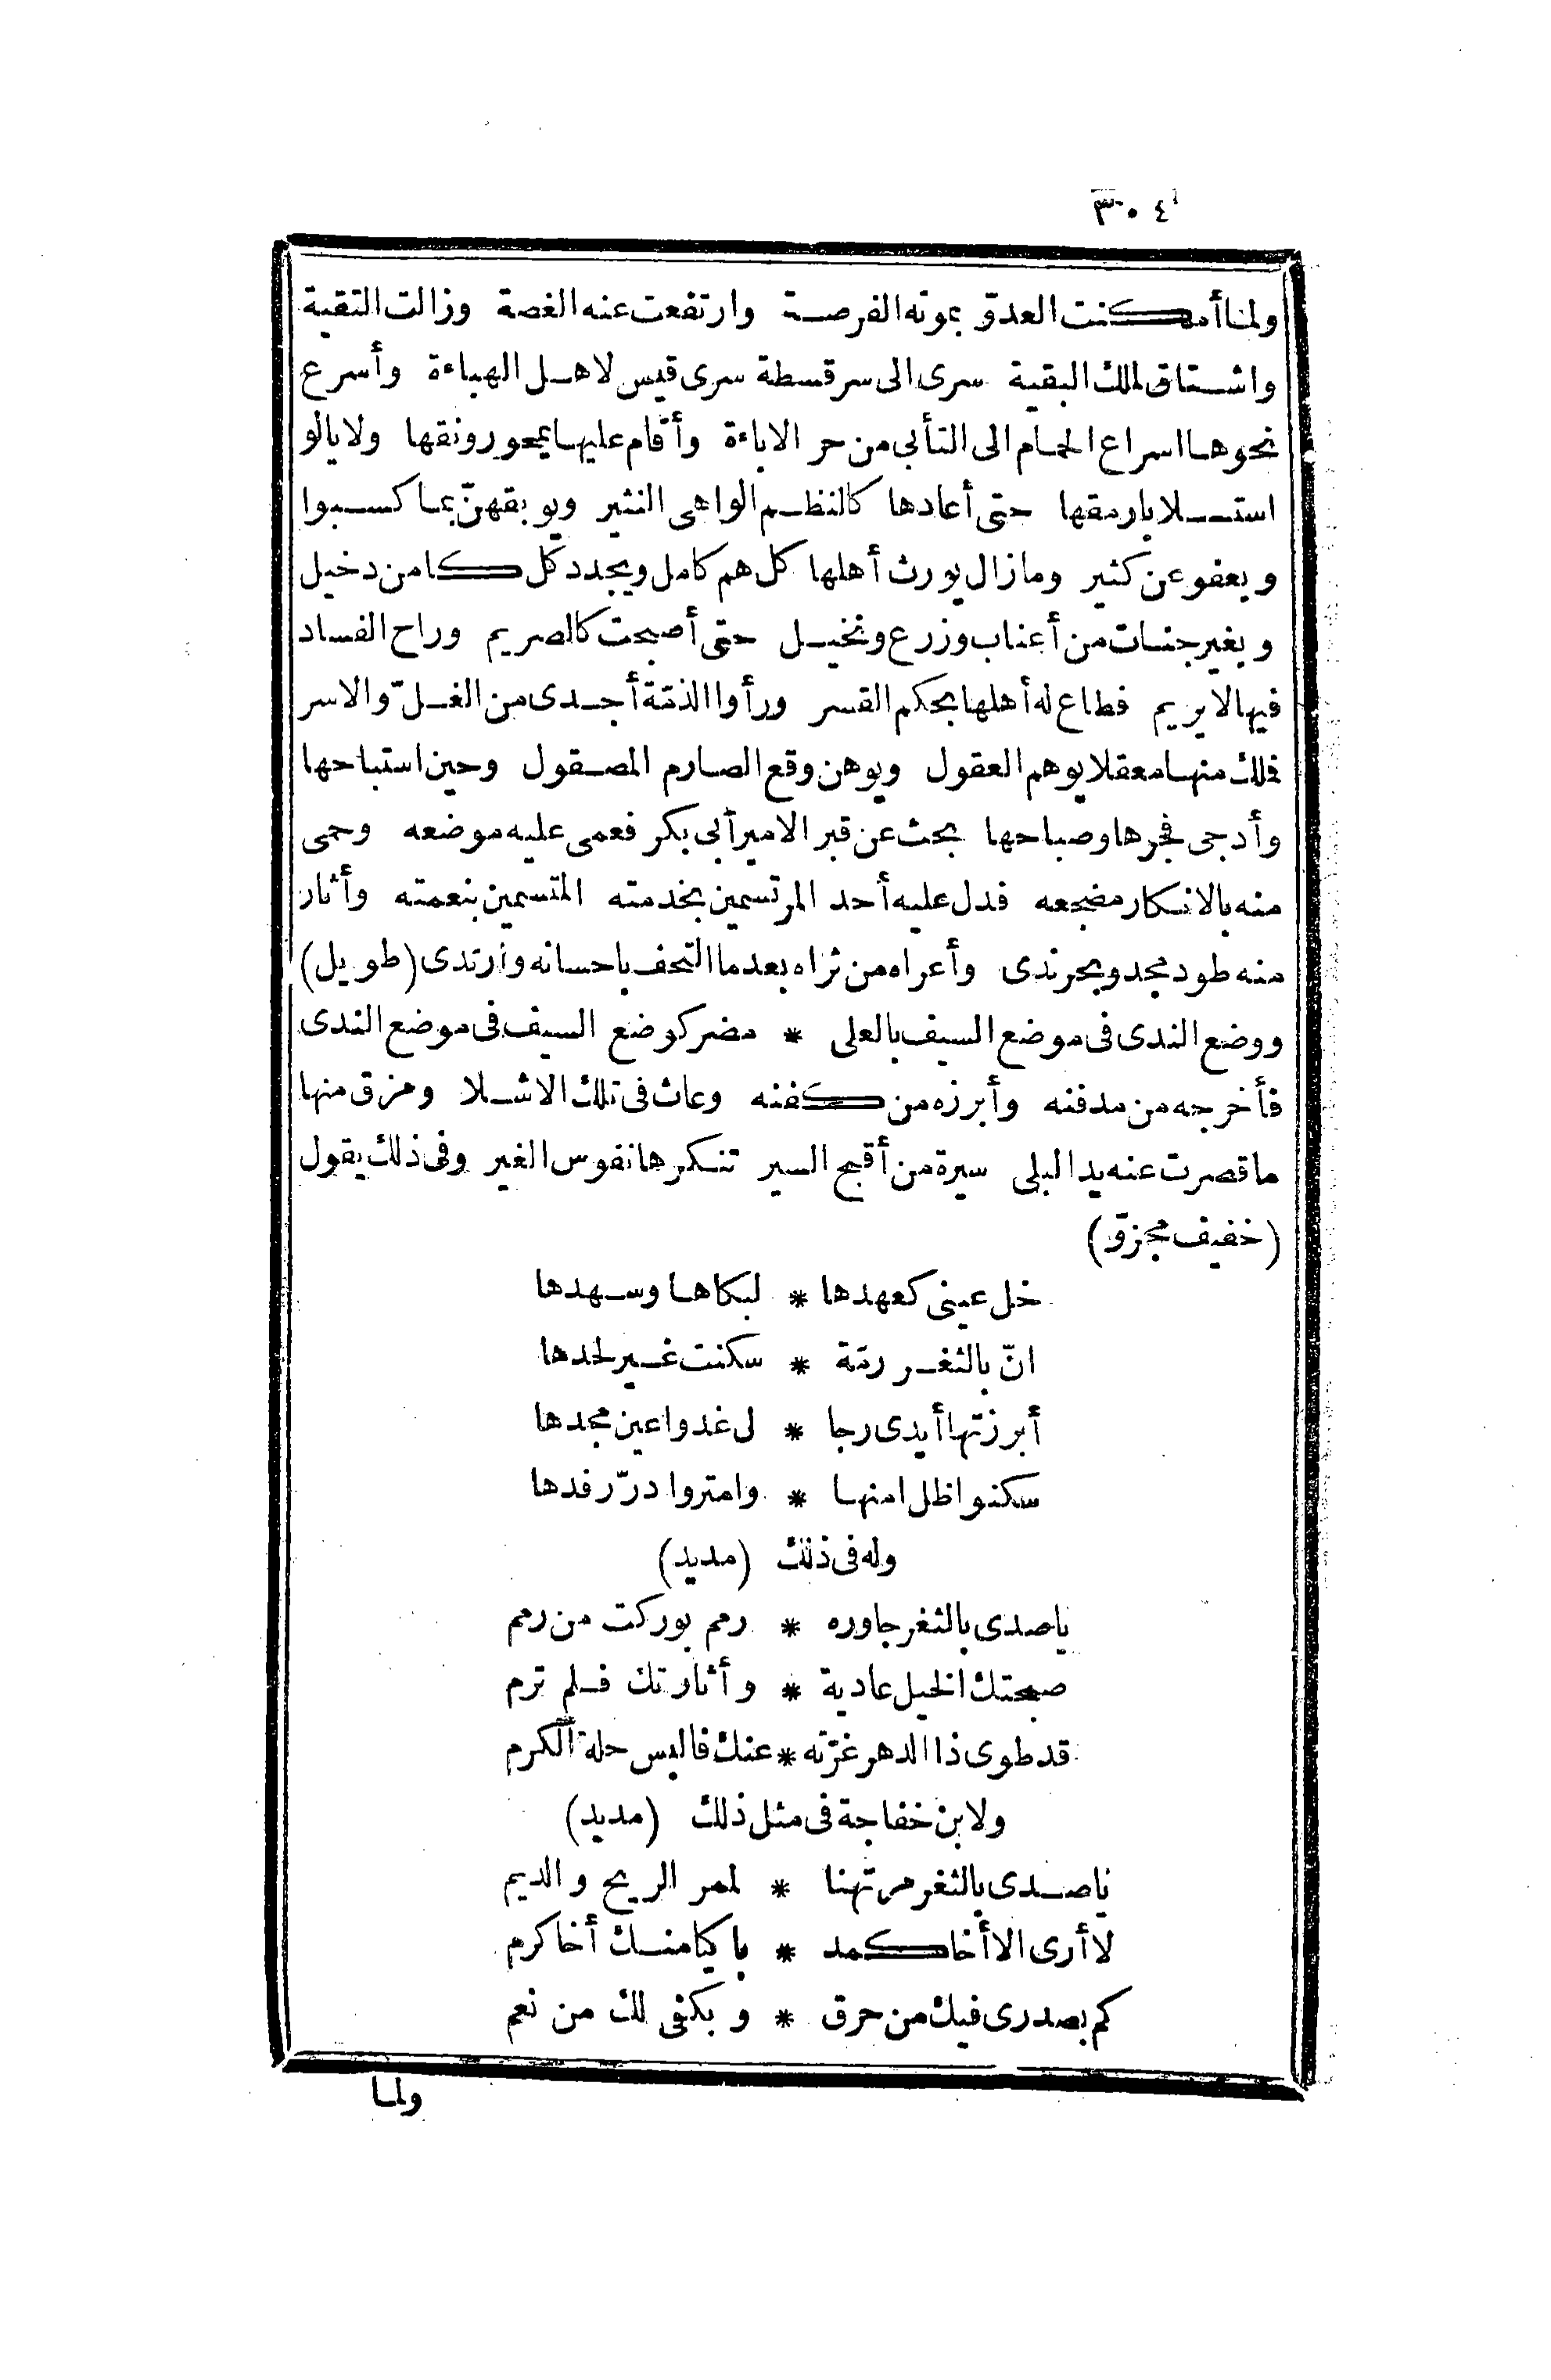 ٣٠٤
ولما أمكنت العدوّ بموته الفرصة وارتفعت عنه الغصة وزالت التقية
واشتاق لملك البقية سرى الى سرقسطة سرى قيس لاهل الهباءة وأسرع
نحوها اسراع الحمام الى التأبى من حر الاباءة وأقام عليها يمحو رونقها ولا يالو
استلابا رمقها حتى أعادها كالنظم الواهى النثير ويوبقهنّ بما كسبوا
ويعفو عن كثير ومازال يورث أهلها كل هم كامل ويجدد كل كامن دخيل
ويغير جنات من أعناب وزرع ونخيل حتى أصبحت كالصريم وراح الفساد
فيها لا يريم فطاع له أهلها بحكم القسر ورأوا الذمّة أجدى من الغلّ والاسر
فملك منها معقلا يوهم العقول ويوهن وقع الصارم المصقول وحين استباحها
وأدجى فجرها وصباحها بحث عن قبر الامير أبى بكر فعمى عليه موضعه وحمى
منه بالانكار مضجعه فدل عليه أحد المرتسمين بخدمته المتسمين بنعمته وأثار
منه طود مجد وبحر ندى وأعراه من ثراه بعدما التحف باحسانه وارتدى (طويل)
ووضع الندى فى موضع السيف بالعلى * مضر كوضع السيف فى موضع الندى
فأخرجه من مدفنه وأبرزه من كفنه وعاث فى تلك الاشلا ومزق منها
ما قصرت عنه يد البلى سيرة من أقبح السير تنكرها نفوس الغير وفى ذلك يقول
(خفيف مجزوّ)
خل عينى كعهدها * لبكاها وسهدها
انّ بالثغر رمّة * سكنت غير لحدها
أبرزتها أيدى رجا * ل غدوا عين مجدها
سكنوا ظل امنها * وامتروا درّ رفدها
وله فى ذلك (مديد)
يا صدى بالثغر جاوره * رمم بوركت من رمم
صبحتك الخيل عادية * وأثارتك فلم ترم
قد طوى ذا الدهر غرّته * عنك فالبس حلة الكرم
ولابن خفاجة فى مثل ذلك (مديد)
يا صدى بالثغر مرتهنا * لممر الريح والديم
لا أرى الا أخا كمد * باكيا منك أخا كرم
كم بصدرى فيك من حرق * وبكفى لك من نعم
ولما